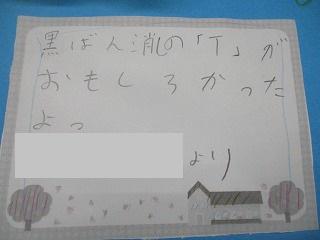 黒ばん消の「T」が
おもしろかった
よっ
より